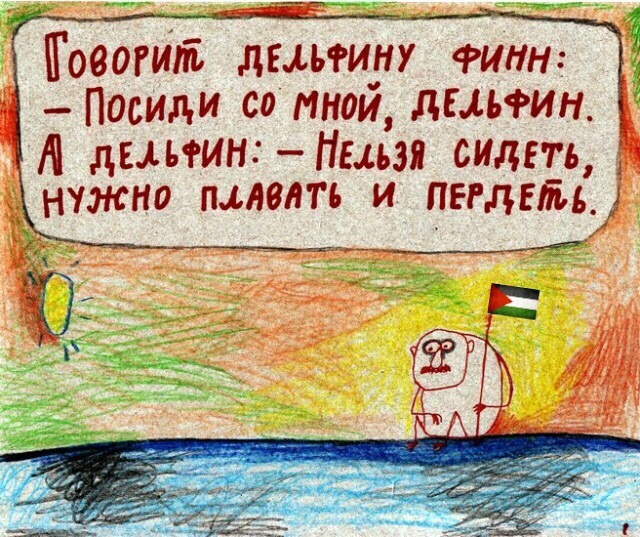 Говорит дельфину финн:
– Посиди со мной, дельфин.
А дельфин: – Нельзя сидеть,
нужно плавать и пердеть.